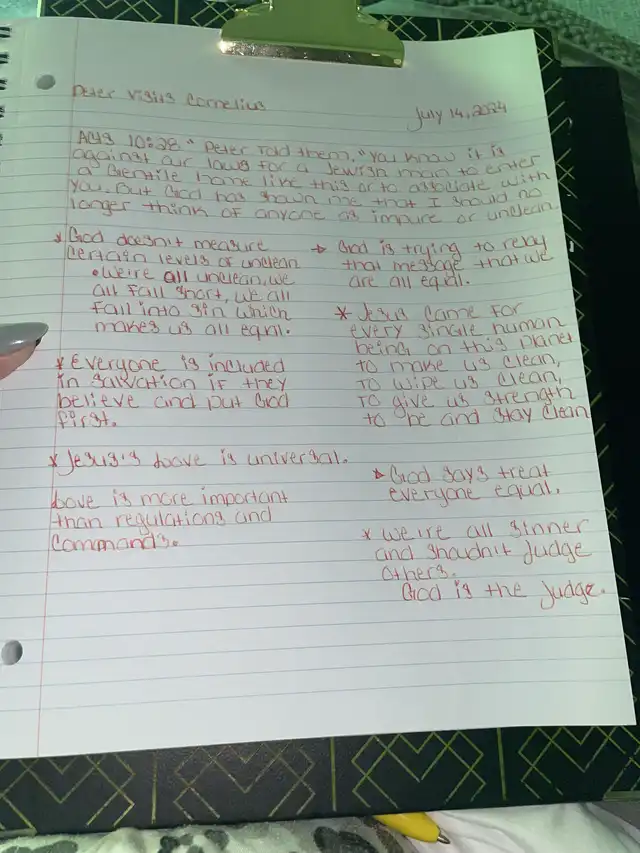 Peter Visits Cornelius
July 14, 2024
Acts 10:28 " Peter told them, "You know it is
against our laws for a Jewish man to enter
a Gentile home like this or to associate with
you. But God has shown me that I should no
longer think of anyone as impure or unclean.
* God doesn't measure
certain levels of unclean
• We're all unclean, we
all fall short, we all
fall into sin which
makes us all equal.
* Everyone is included
in salvation if they
believe and put God
first.
* Jesus's Love is universal.
Love is more important
than regulations and
commands.
* God is trying to relay
that message that we
are all equal.
* Jesus came for
every single human
being on this planet
to make us clean,
to wipe us clean,
to give us strength
to be and stay clean
* God says treat
everyone equal.
* We're all sinner
and shouldn't judge
others.
God is the judge.